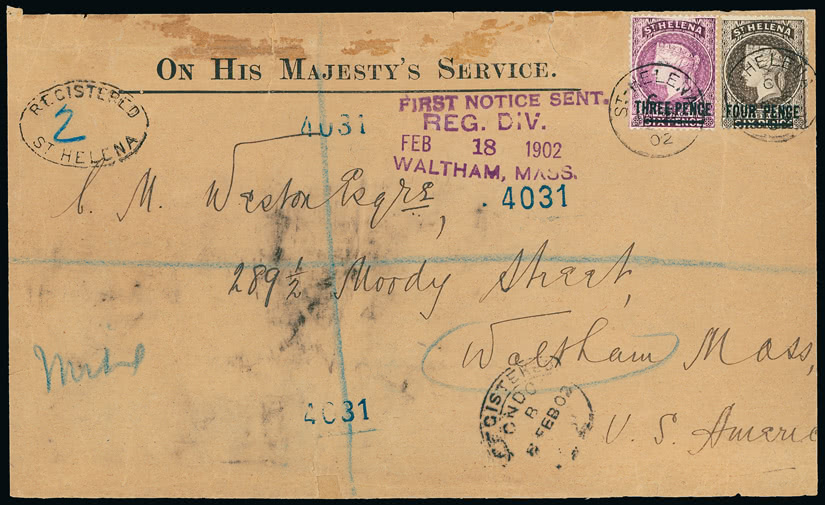 ST HELENA
THREE PENCE
SIXPENCE
ST HELENA
FOUR PENCE
ON HIS MAJESTY'S SERVICE.
REGISTERED
2
ST HELENA
ST. HELENA
02
HELENA
6
4031
FIRST NOTICE SENT.
REG. DIV.
FEB 18 1902
WALTHAM, MASS.
4031
C. M. Weston Esqre,
289 ½ Moody Street,
Waltham Mass,
U. S. Americ
4031
REGISTERED
LONDON
8 FEB 02